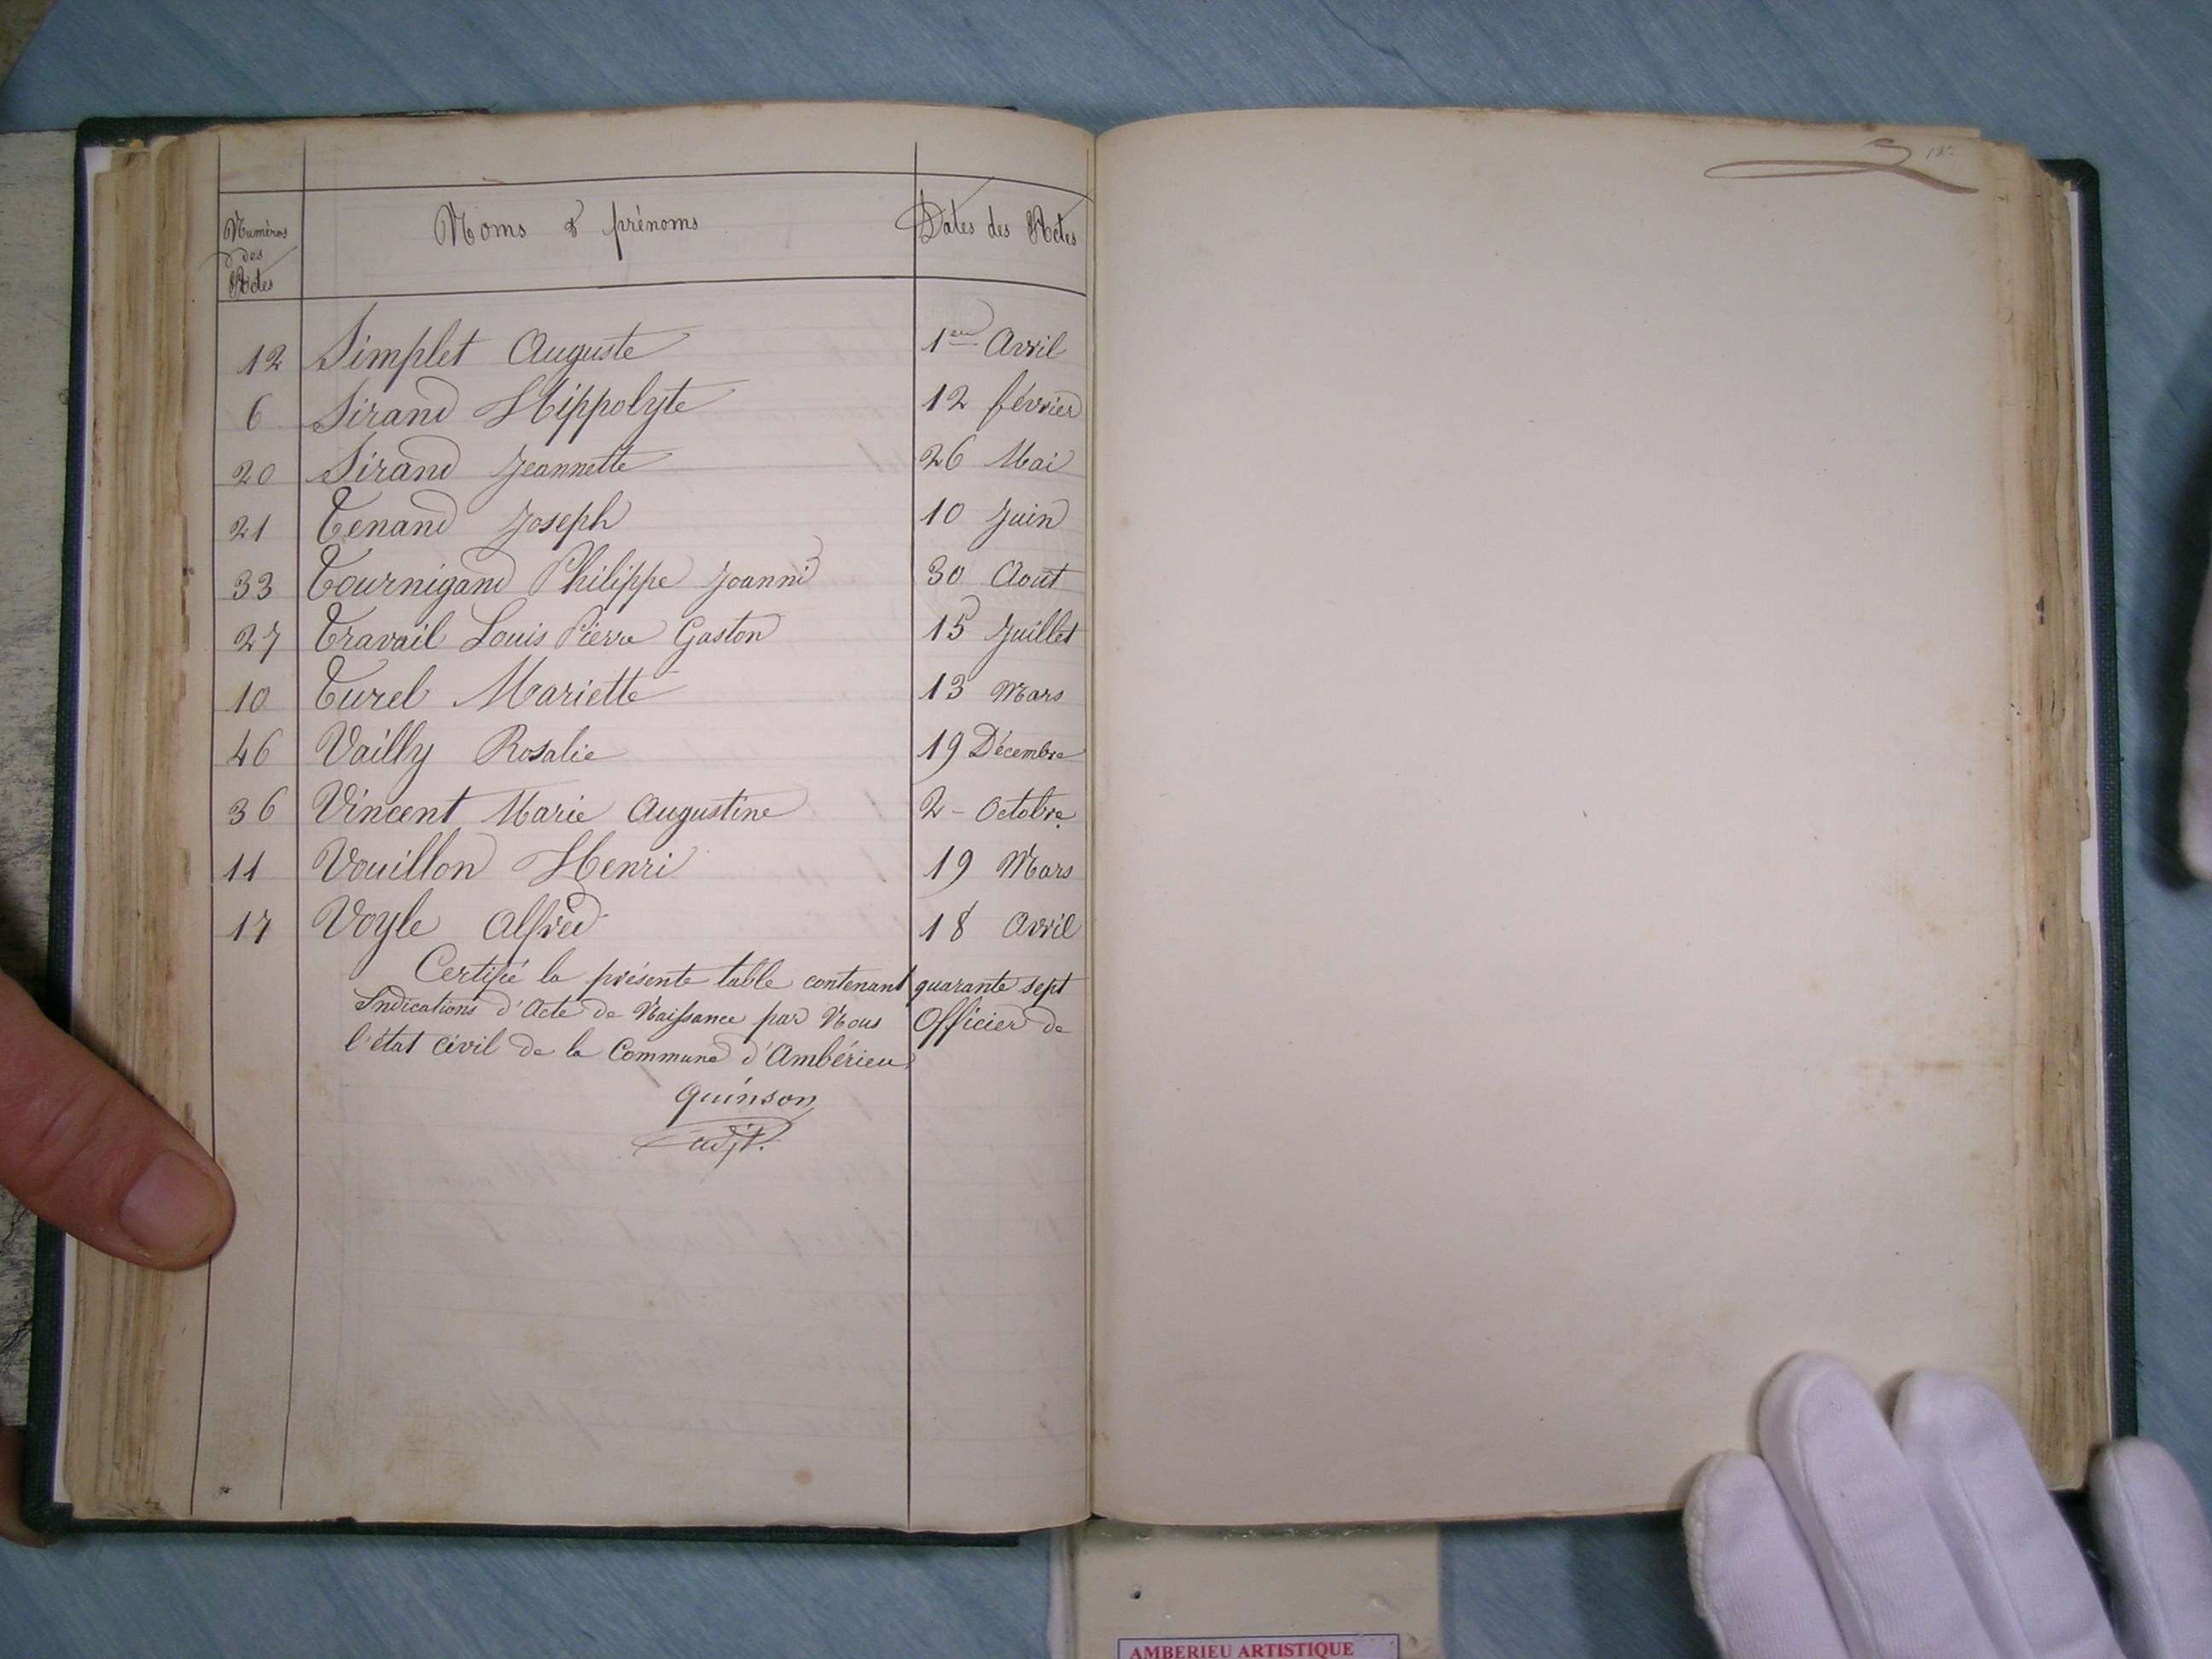 Numéros
des
Actes
Noms & prénoms
Dates des Actes
12 Simplet Auguste 1er Avril
6 Sirand Hippolyte 12 février
20 Sirand Jeannette 26 Mai
21 Tenand Joseph 10 Juin
33 Tournigand Philippe Joanni 30 Aout
27 Travail Louis Pierre Gaston 15 Juillet
10 Turel Mariette 13 Mars
46 Vailly Rosalie 19 Décembre
36 Vincent Marie Augustine 2 - Octobre
11 Vouillon Henri 19 Mars
17 Voyle Alfred 18 Avril
Certifié la présente table contenant quarante sept
Indications d'Acte de Naissance par Nous Officier de
l'état civil de la Commune d'Ambérieu
Quinson
adjt.
AMBERIEU ARTISTIQUE